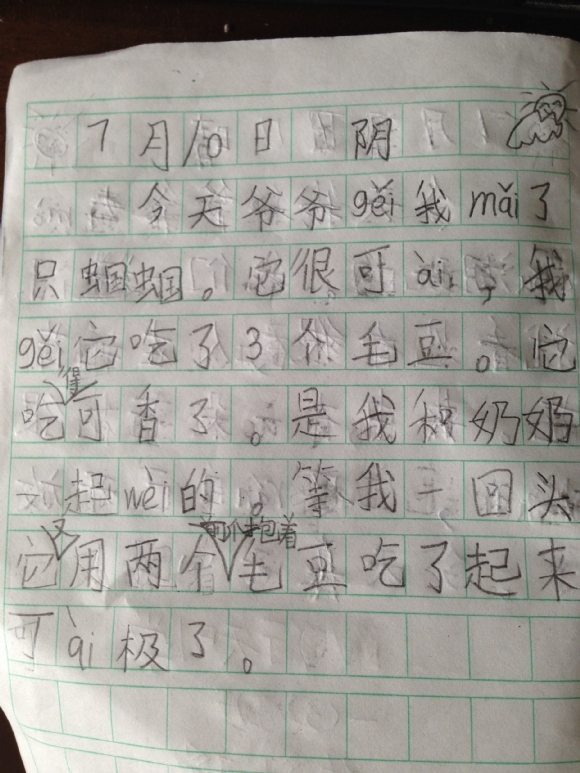 7月10日 阴
今天爷爷gěi我mǎi了
只蝈蝈。它很可ài,我
gěi它吃了3个毛豆。它
吃得可香了。是我和奶奶
一起wèi的。等我一回头
它又用两个前爪抱着毛豆吃了起来
可ài极了。